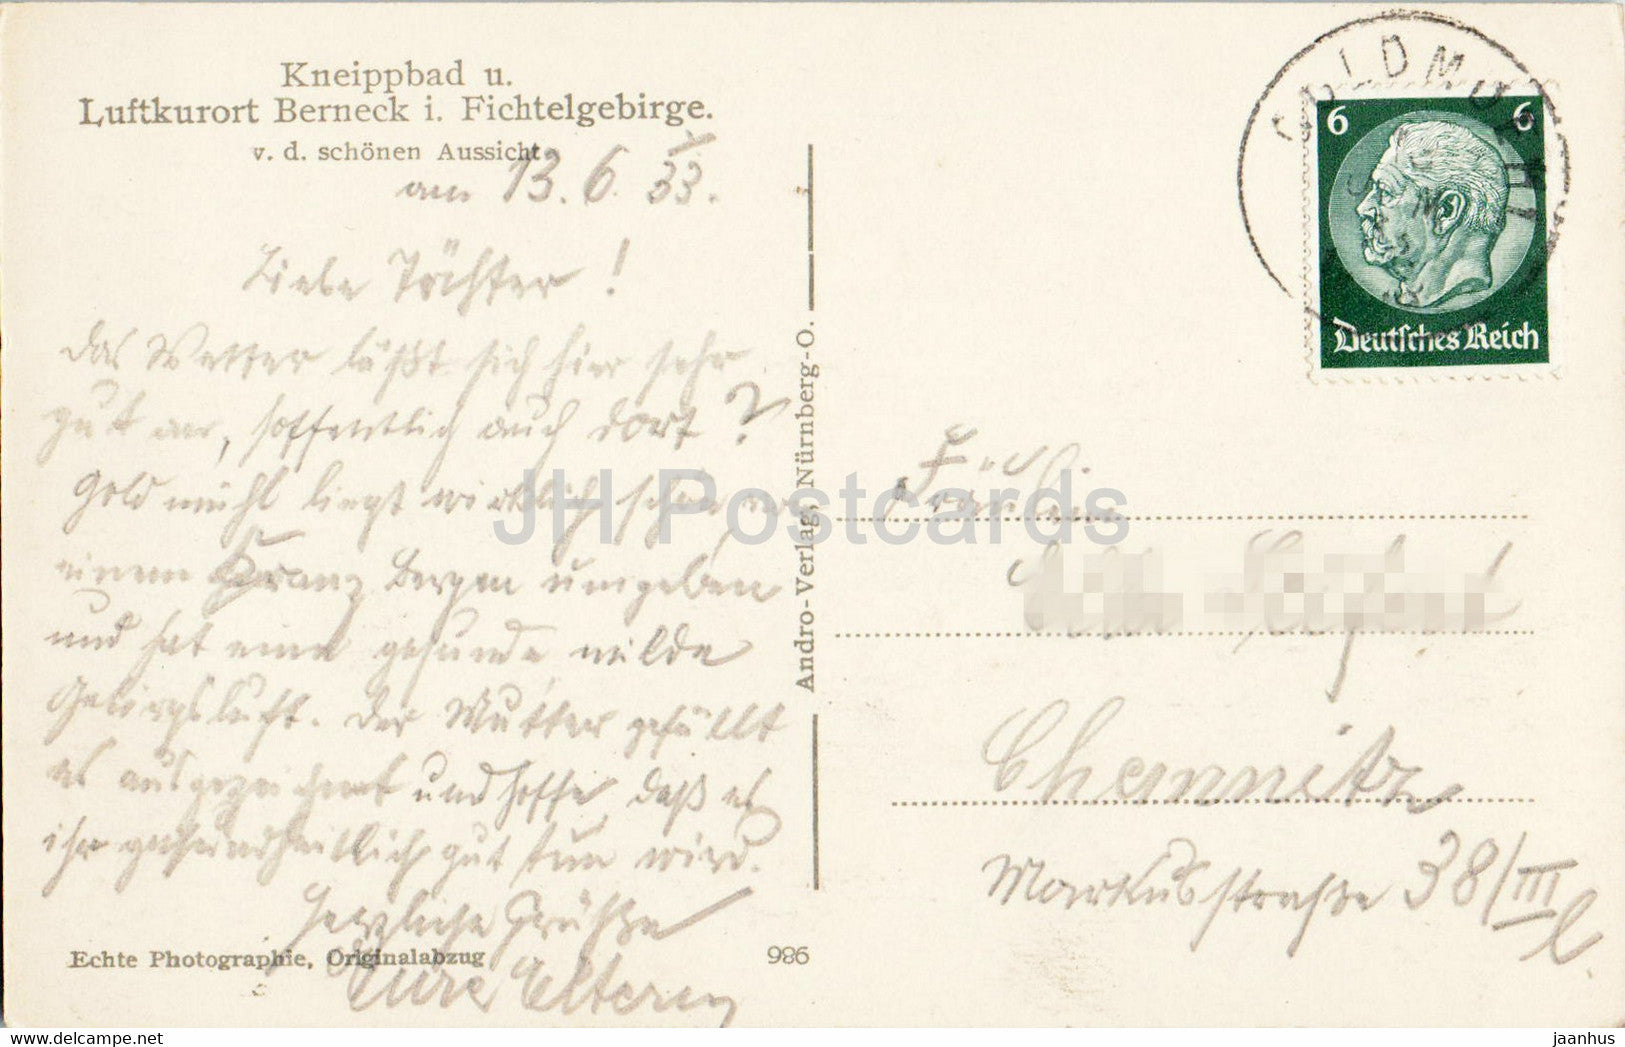 Kneippbad u.
Luftkurort Berneck i. Fichtelgebirge.
v. d. schönen Aussicht
am 13. 6. 33.
Liebe Töchter!
Das Wetter läßt sich hier sehr
gut an, hoffentlich auch dort?
Goldmühl liegt wirklich schön, von
einem Kranz Bergen umgeben
und hat eine gesunde milde
Gebirgsluft. Der Mutter gefällt
es ausgezeichnet und hoffe, daß es
ihr gesundheitlich gut tun wird.
Herzliche Grüße
Eure Eltern
Echte Photographie, Originalabzug
986
Andro-Verlag, Nürnberg-O.
GOLDMÜHL
6 6
Deutsches Reich
Fräulein
Chemnitz
Markusstraße 38/III
JH Postcards
https://www.hippostcard.com
jaanhus